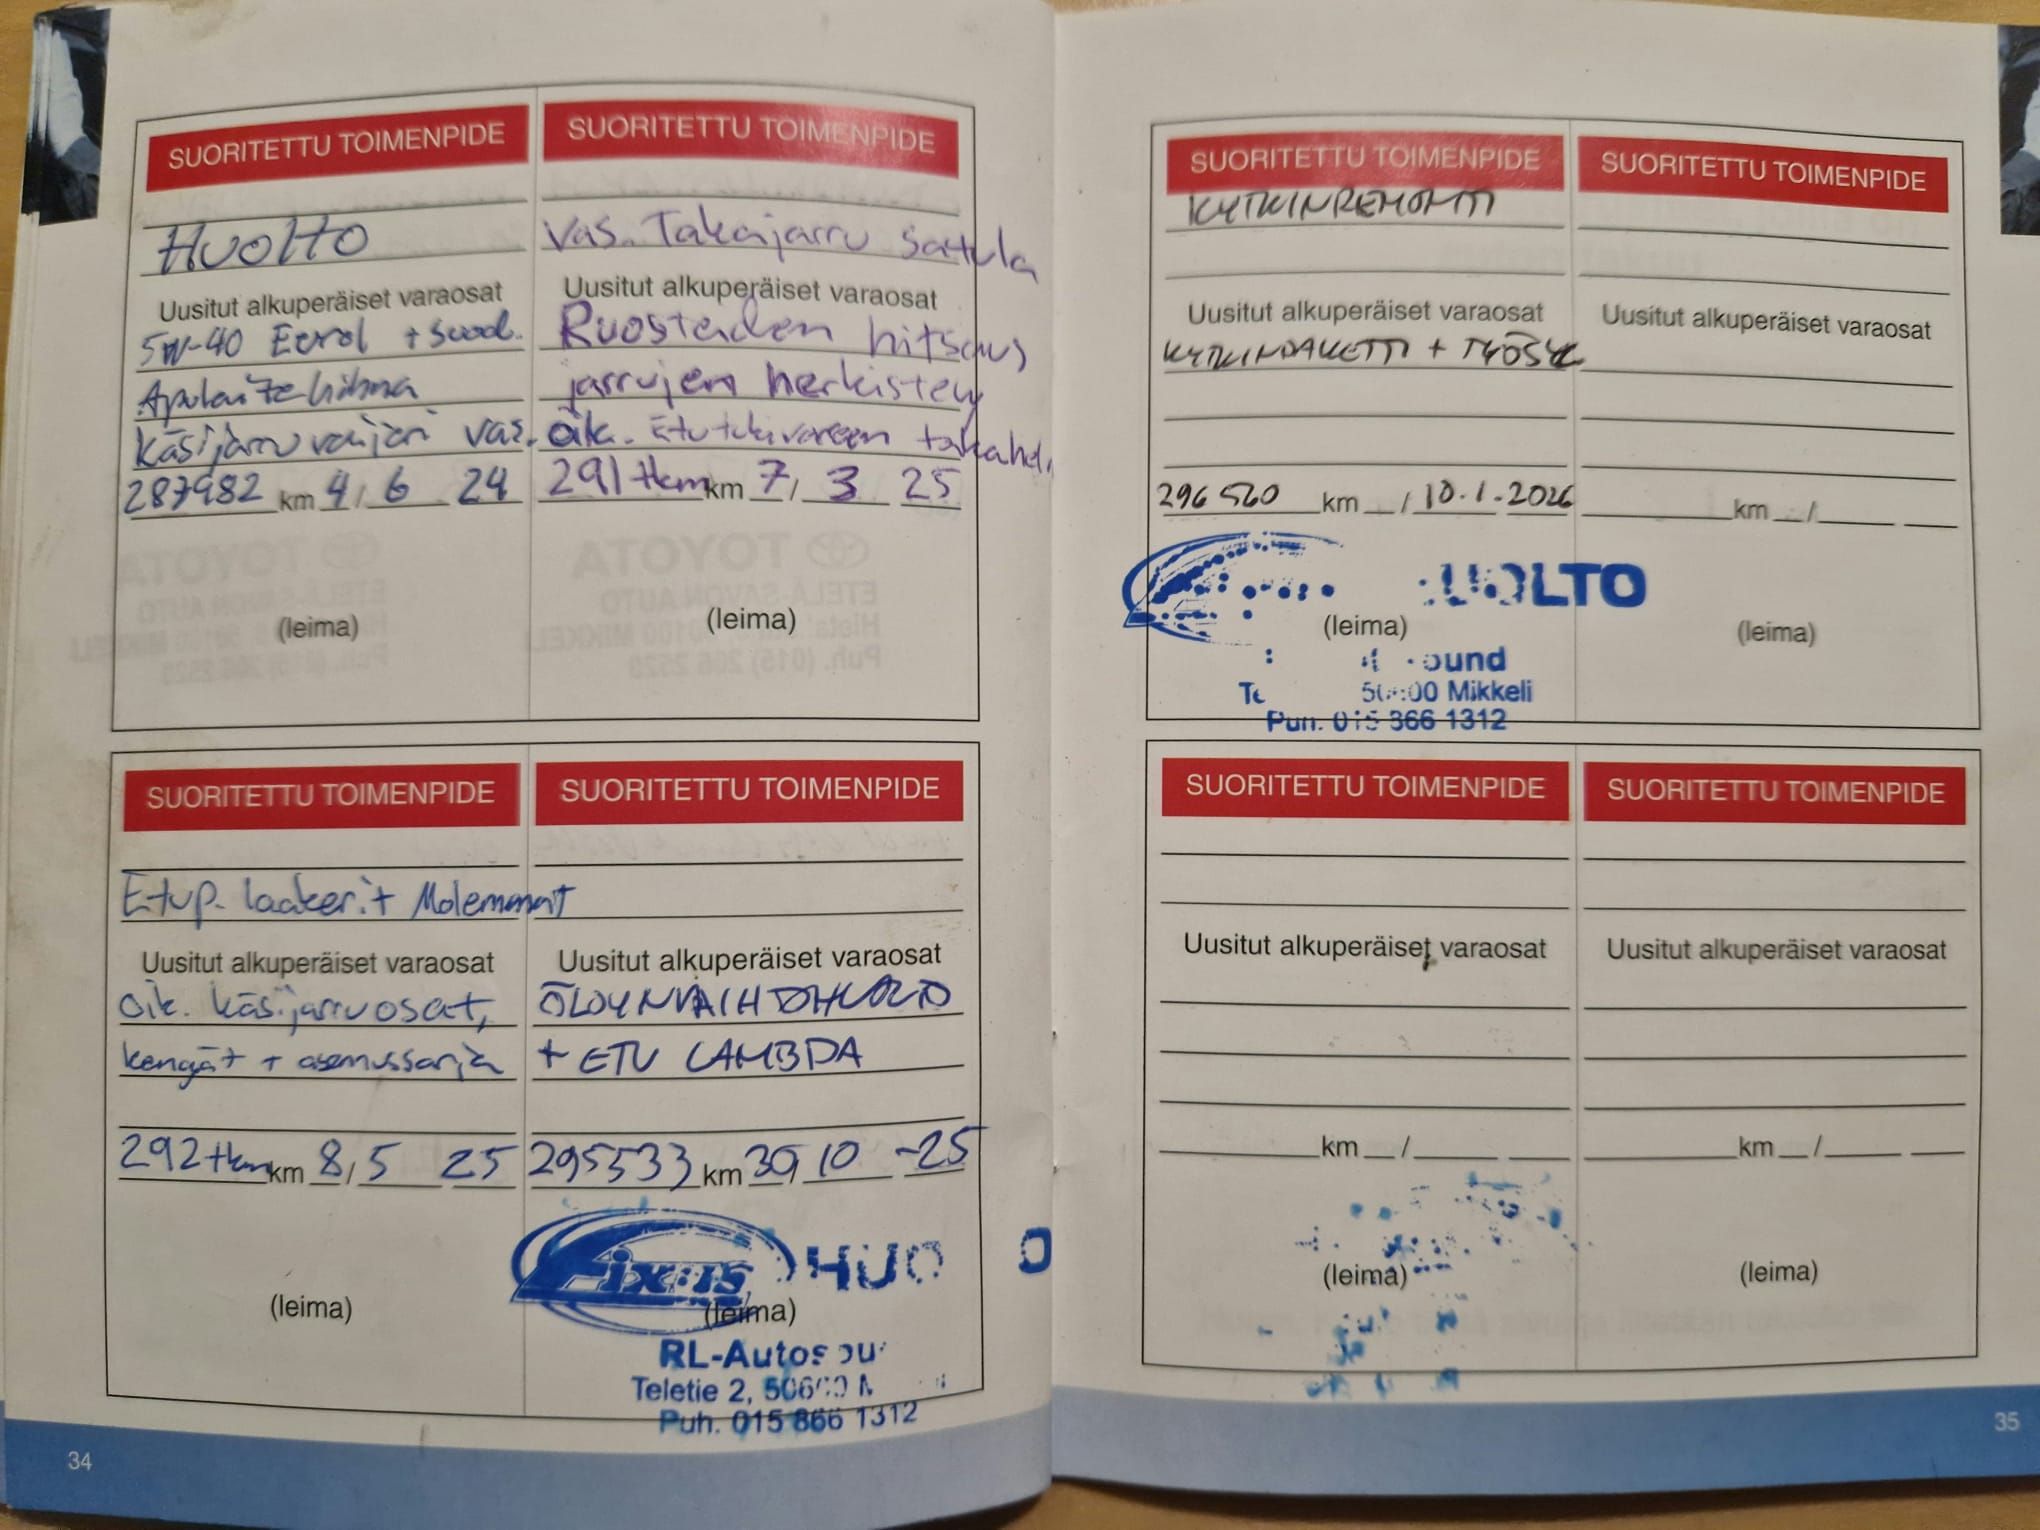 SUORITETTU TOIMENPIDE
Huolto
Uusitut alkuperäiset varaosat
5W-40 Eurol + suod.
Apulaitehihna
Käsijarruvaijeri vas.
287982 km 4/6 24
(leima)
SUORITETTU TOIMENPIDE
Vas. Takajarru satula
Uusitut alkuperäiset varaosat
Ruosteiden hitsaus
jarrujen herkistely
oik. Etutukivarren takahela
291tkm km 7/3 25
(leima)
SUORITETTU TOIMENPIDE
Etup. laakerit Molemmat
Uusitut alkuperäiset varaosat
Oik. käsijarruosat,
kengät + asennussarja
292tkm km 8/5 25
(leima)
SUORITETTU TOIMENPIDE
Uusitut alkuperäiset varaosat
ÖLJYNVAIHTOHUOLTO
+ ETU LAMBDA
295533 km 30/10 -25
Fixus HUO O
(leima)
RL-Autos ou
Teletie 2, 50600 M
Puh. 015 866 1312
34
SUORITETTU TOIMENPIDE
KYTKINREMONTTI
Uusitut alkuperäiset varaosat
KYTKINPAKETTI + TYÖSYL
296 560 km / 10.1.2026
HUOLTO
(leima)
ound
Te 50600 Mikkeli
Puh. 015 866 1312
SUORITETTU TOIMENPIDE
Uusitut alkuperäiset varaosat
km /
(leima)
SUORITETTU TOIMENPIDE
Uusitut alkuperäiset varaosat
km /
(leima)
SUORITETTU TOIMENPIDE
Uusitut alkuperäiset varaosat
km /
(leima)
35